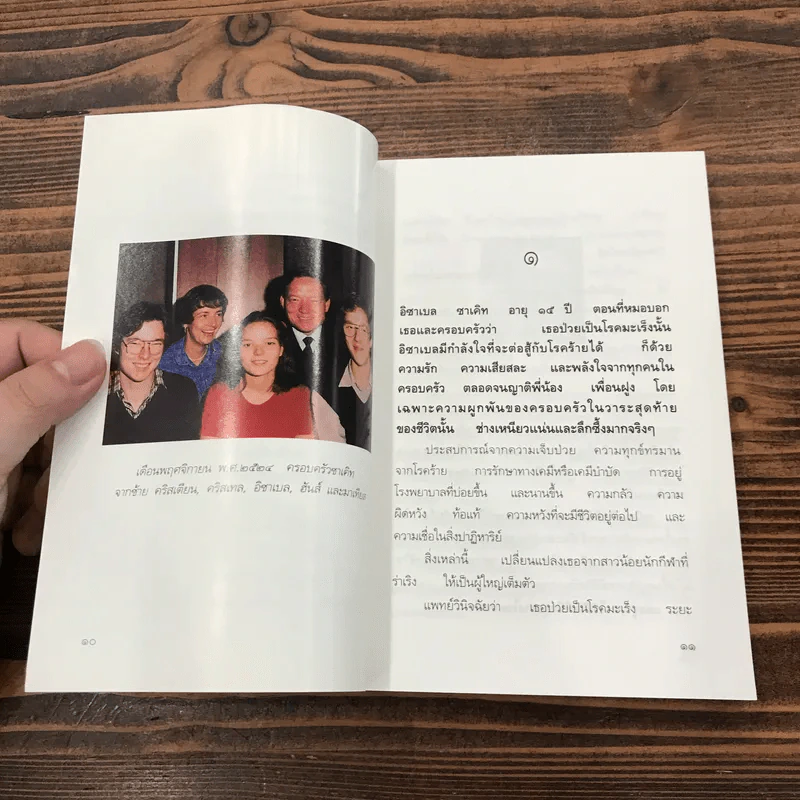 เดือนพฤศจิกายน พ.ศ.๒๕๒๔ ครอบครัวซาเคิท
จากซ้าย คริสเตียน, คริสเทล, อิซาเบล, ฮันส์ และมาเทียส
๑๐
๑
อิซาเบล ซาเคิท อายุ ๑๕ ปี ตอนที่หมอบอก
เธอและครอบครัวว่า เธอป่วยเป็นโรคมะเร็งนั้น
อิซาเบลมีกำลังใจที่จะต่อสู้กับโรคร้ายได้ ก็ด้วย
ความรัก ความเสียสละ และพลังใจจากทุกคนใน
ครอบครัว ตลอดจนญาติพี่น้อง เพื่อนฝูง โดย
เฉพาะความผูกพันของครอบครัวในวาระสุดท้าย
ของชีวิตนั้น ช่างเหนียวแน่นและลึกซึ้งมากจริงๆ
ประสบการณ์จากความเจ็บป่วย ความทุกข์ทรมาน
จากโรคร้าย การรักษาทางเคมีหรือเคมีบำบัด การอยู่
โรงพยาบาลที่บ่อยขึ้น และนานขึ้น ความกลัว ความ
ผิดหวัง ท้อแท้ ความหวังที่จะมีชีวิตอยู่ต่อไป และ
ความเชื่อในสิ่งปาฏิหาริย์
สิ่งเหล่านี้ เปลี่ยนแปลงเธอจากสาวน้อยนักกีฬาที่
ร่าเริง ให้เป็นผู้ใหญ่เต็มตัว
แพทย์วินิจฉัยว่า เธอป่วยเป็นโรคมะเร็ง ระยะ
๑๑